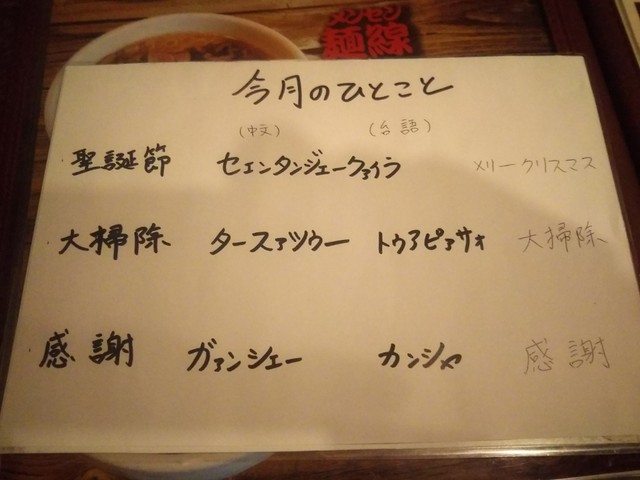 メンセン
麺線
今月のひとこと
(中文) (台語)
聖誕節 セエンタンジェークァイラ メリークリスマス
大掃除 タースァツウー トゥアピァサオ 大掃除
感謝 ガァンシェー カンシャ 感謝